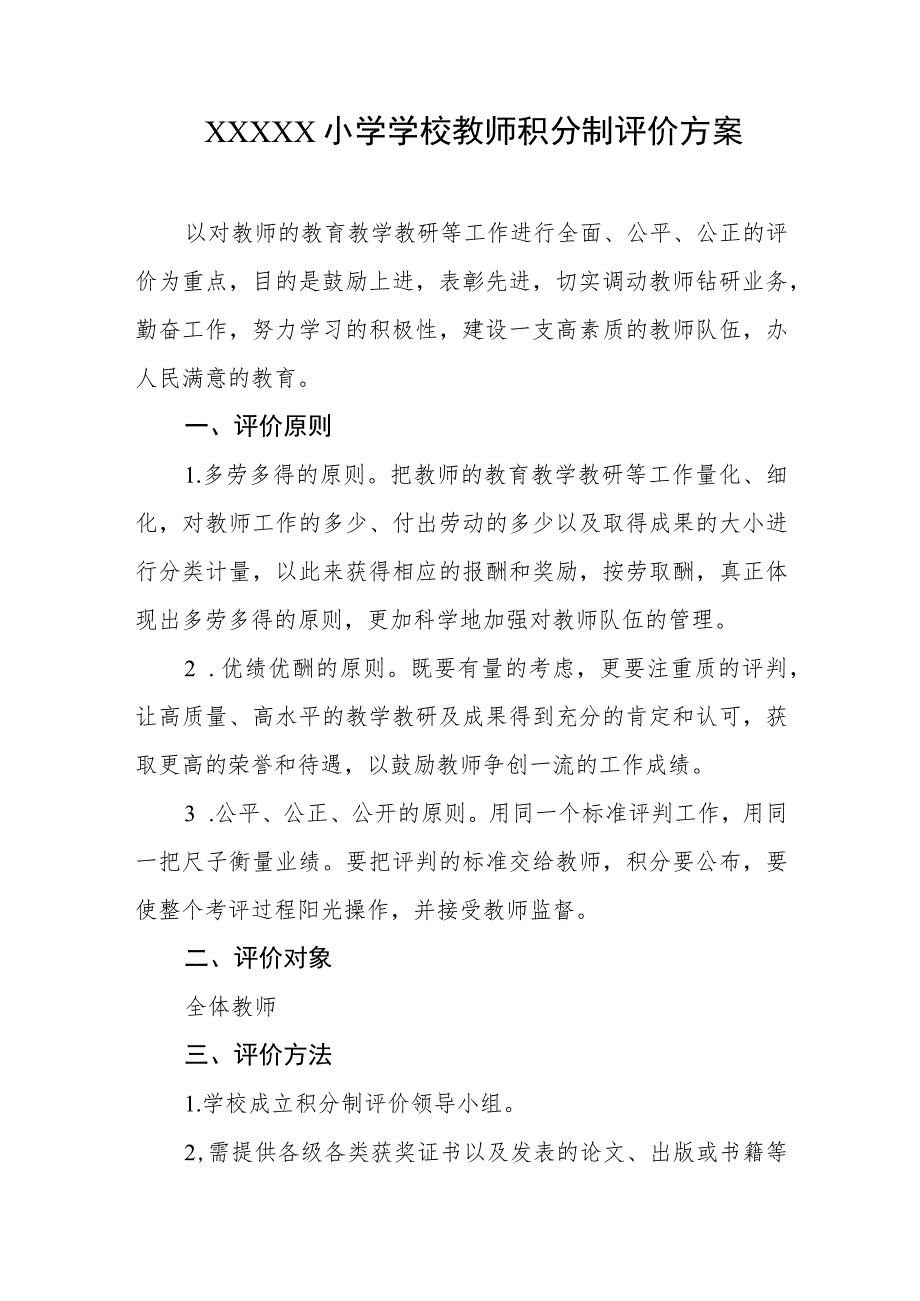 XXXXX 小学学校教师积分制评价方案
以对教师的教育教学教研等工作进行全面、公平、公正的评
价为重点，目的是鼓励上进，表彰先进，切实调动教师钻研业务，
勤奋工作，努力学习的积极性，建设一支高素质的教师队伍，办
人民满意的教育。
一、评价原则
1.多劳多得的原则。把教师的教育教学教研等工作量化、细
化，对教师工作的多少、付出劳动的多少以及取得成果的大小进
行分类计量，以此来获得相应的报酬和奖励，按劳取酬，真正体
现出多劳多得的原则，更加科学地加强对教师队伍的管理。
2 .优绩优酬的原则。既要有量的考虑，更要注重质的评判，
让高质量、高水平的教学教研及成果得到充分的肯定和认可，获
取更高的荣誉和待遇，以鼓励教师争创一流的工作成绩。
3 .公平、公正、公开的原则。用同一个标准评判工作，用同
一把尺子衡量业绩。要把评判的标准交给教师，积分要公布，要
使整个考评过程阳光操作，并接受教师监督。
二、评价对象
全体教师
三、评价方法
1.学校成立积分制评价领导小组。
2,需提供各级各类获奖证书以及发表的论文、出版或书籍等